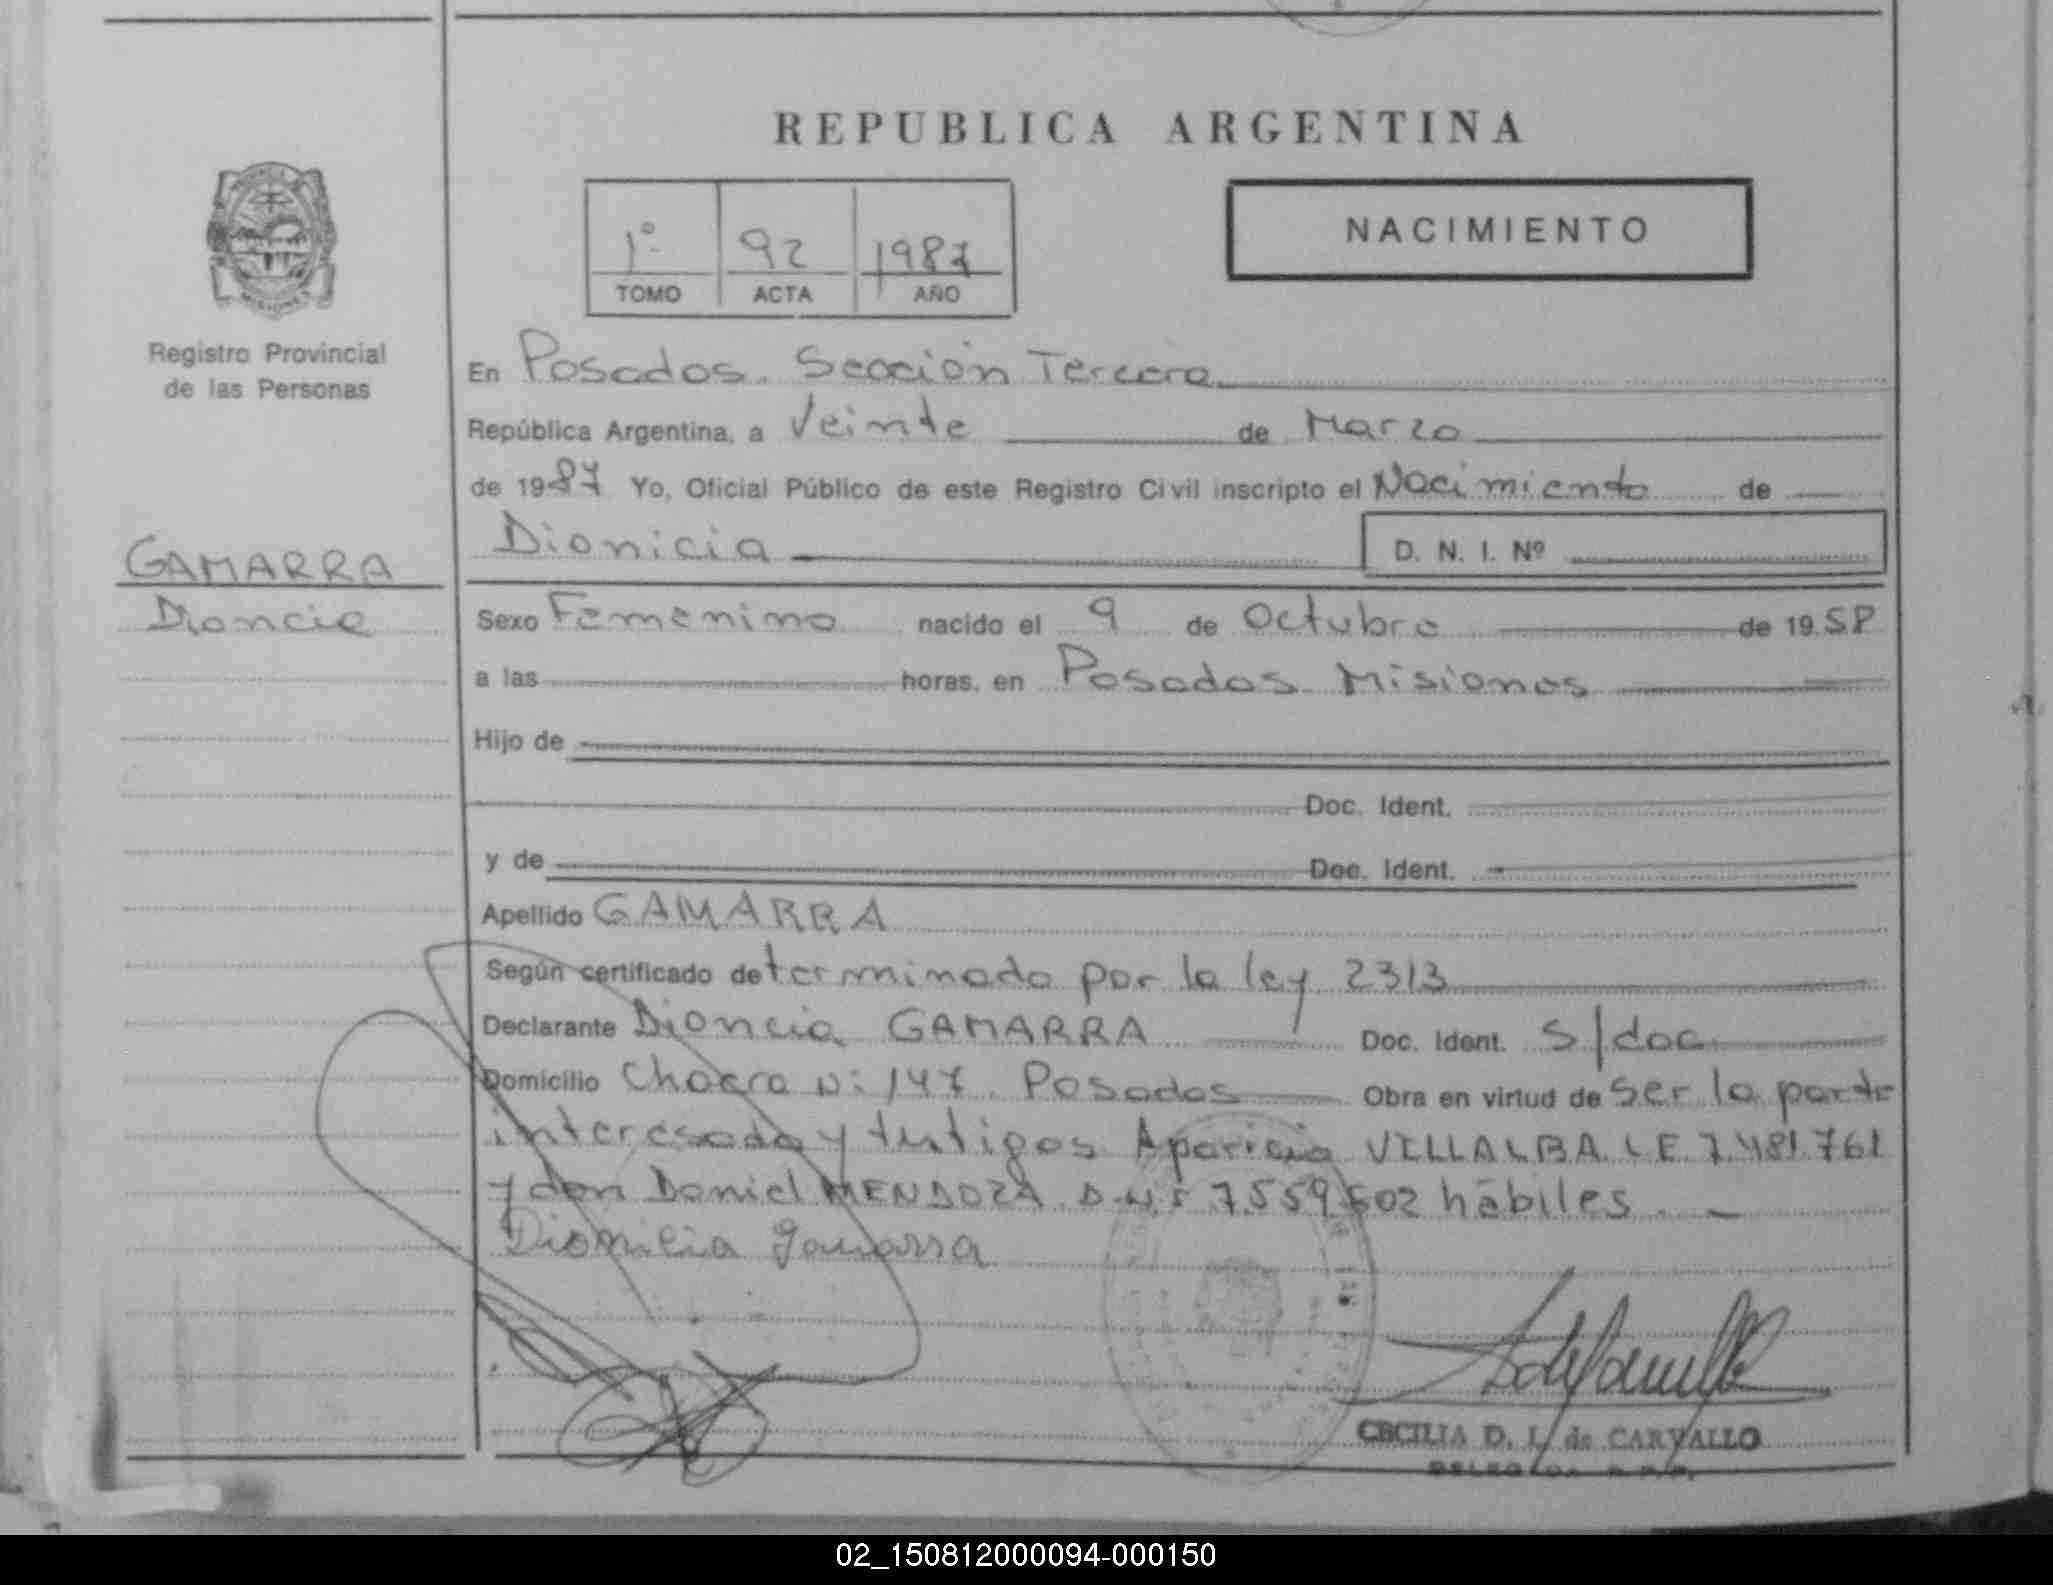 REPUBLICA ARGENTINA
NACIMIENTO
1º 92 1987
TOMO ACTA AÑO
MISIONES
Registro Provincial
de las Personas
En Posadas. Sección Tercera
República Argentina, a Veinte de Marzo
de 1987 Yo, Oficial Público de este Registro Civil inscripto el Nacimiento de
Dionicia D. N. I. Nº
GAMARRA
Dioncia
Sexo Femenino nacido el 9 de Octubre de 1958
a las horas, en Posadas Misiones
Hijo de
Doc. Ident.
y de Doc. Ident.
Apellido GAMARRA
Según certificado determinado por la ley 2313
Declarante Dioncia GAMARRA Doc. Ident. S/doc
Domicilio Chacra N: 147 Posadas Obra en virtud de ser la parte
interesada y testigos Aparicio VILLALBA L E 7.481.761
y don Daniel MENDOZA D.N.I 7.559.602 hábiles. –
Dionicia Gamarra
CECILIA D. L. de CARVALLO
02_150812000094-000150